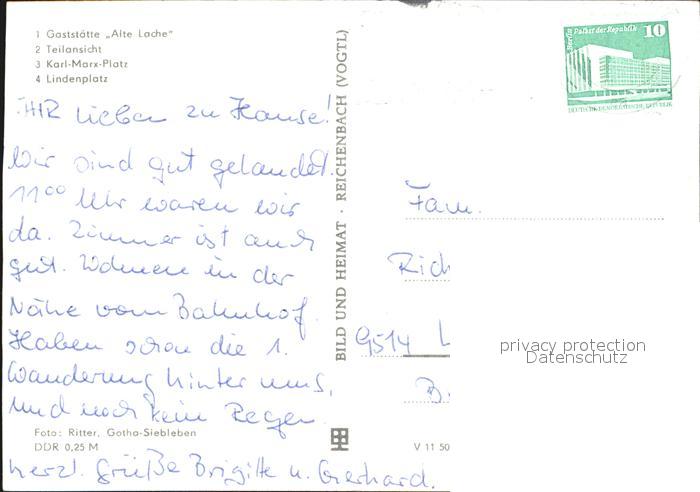 1 Gaststätte „Alte Lache"
2 Teilansicht
3 Karl-Marx-Platz
4 Lindenplatz
IHR Lieben zu Hause!
Wir sind gut gelandet.
11⁰⁰ Uhr waren wir
da. Zimmer ist auch
gut. Wohnen in der
Nähe vom Bahnhof.
Haben schon die 1.
Wanderung hinter uns,
und noch kein Regen.
Foto: Ritter, Gotha-Siebleben
DDR 0,25 M
herzl. Grüße Brigitte u. Gerhard.
BILD UND HEIMAT · REICHENBACH (VOGTL)
V 11 50
Berlin Palast der Republik 10
DEUTSCHE DEMOKRATISCHE REPUBLIK
Fam.
Rich
9514 L
B
privacy protection
Datenschutz